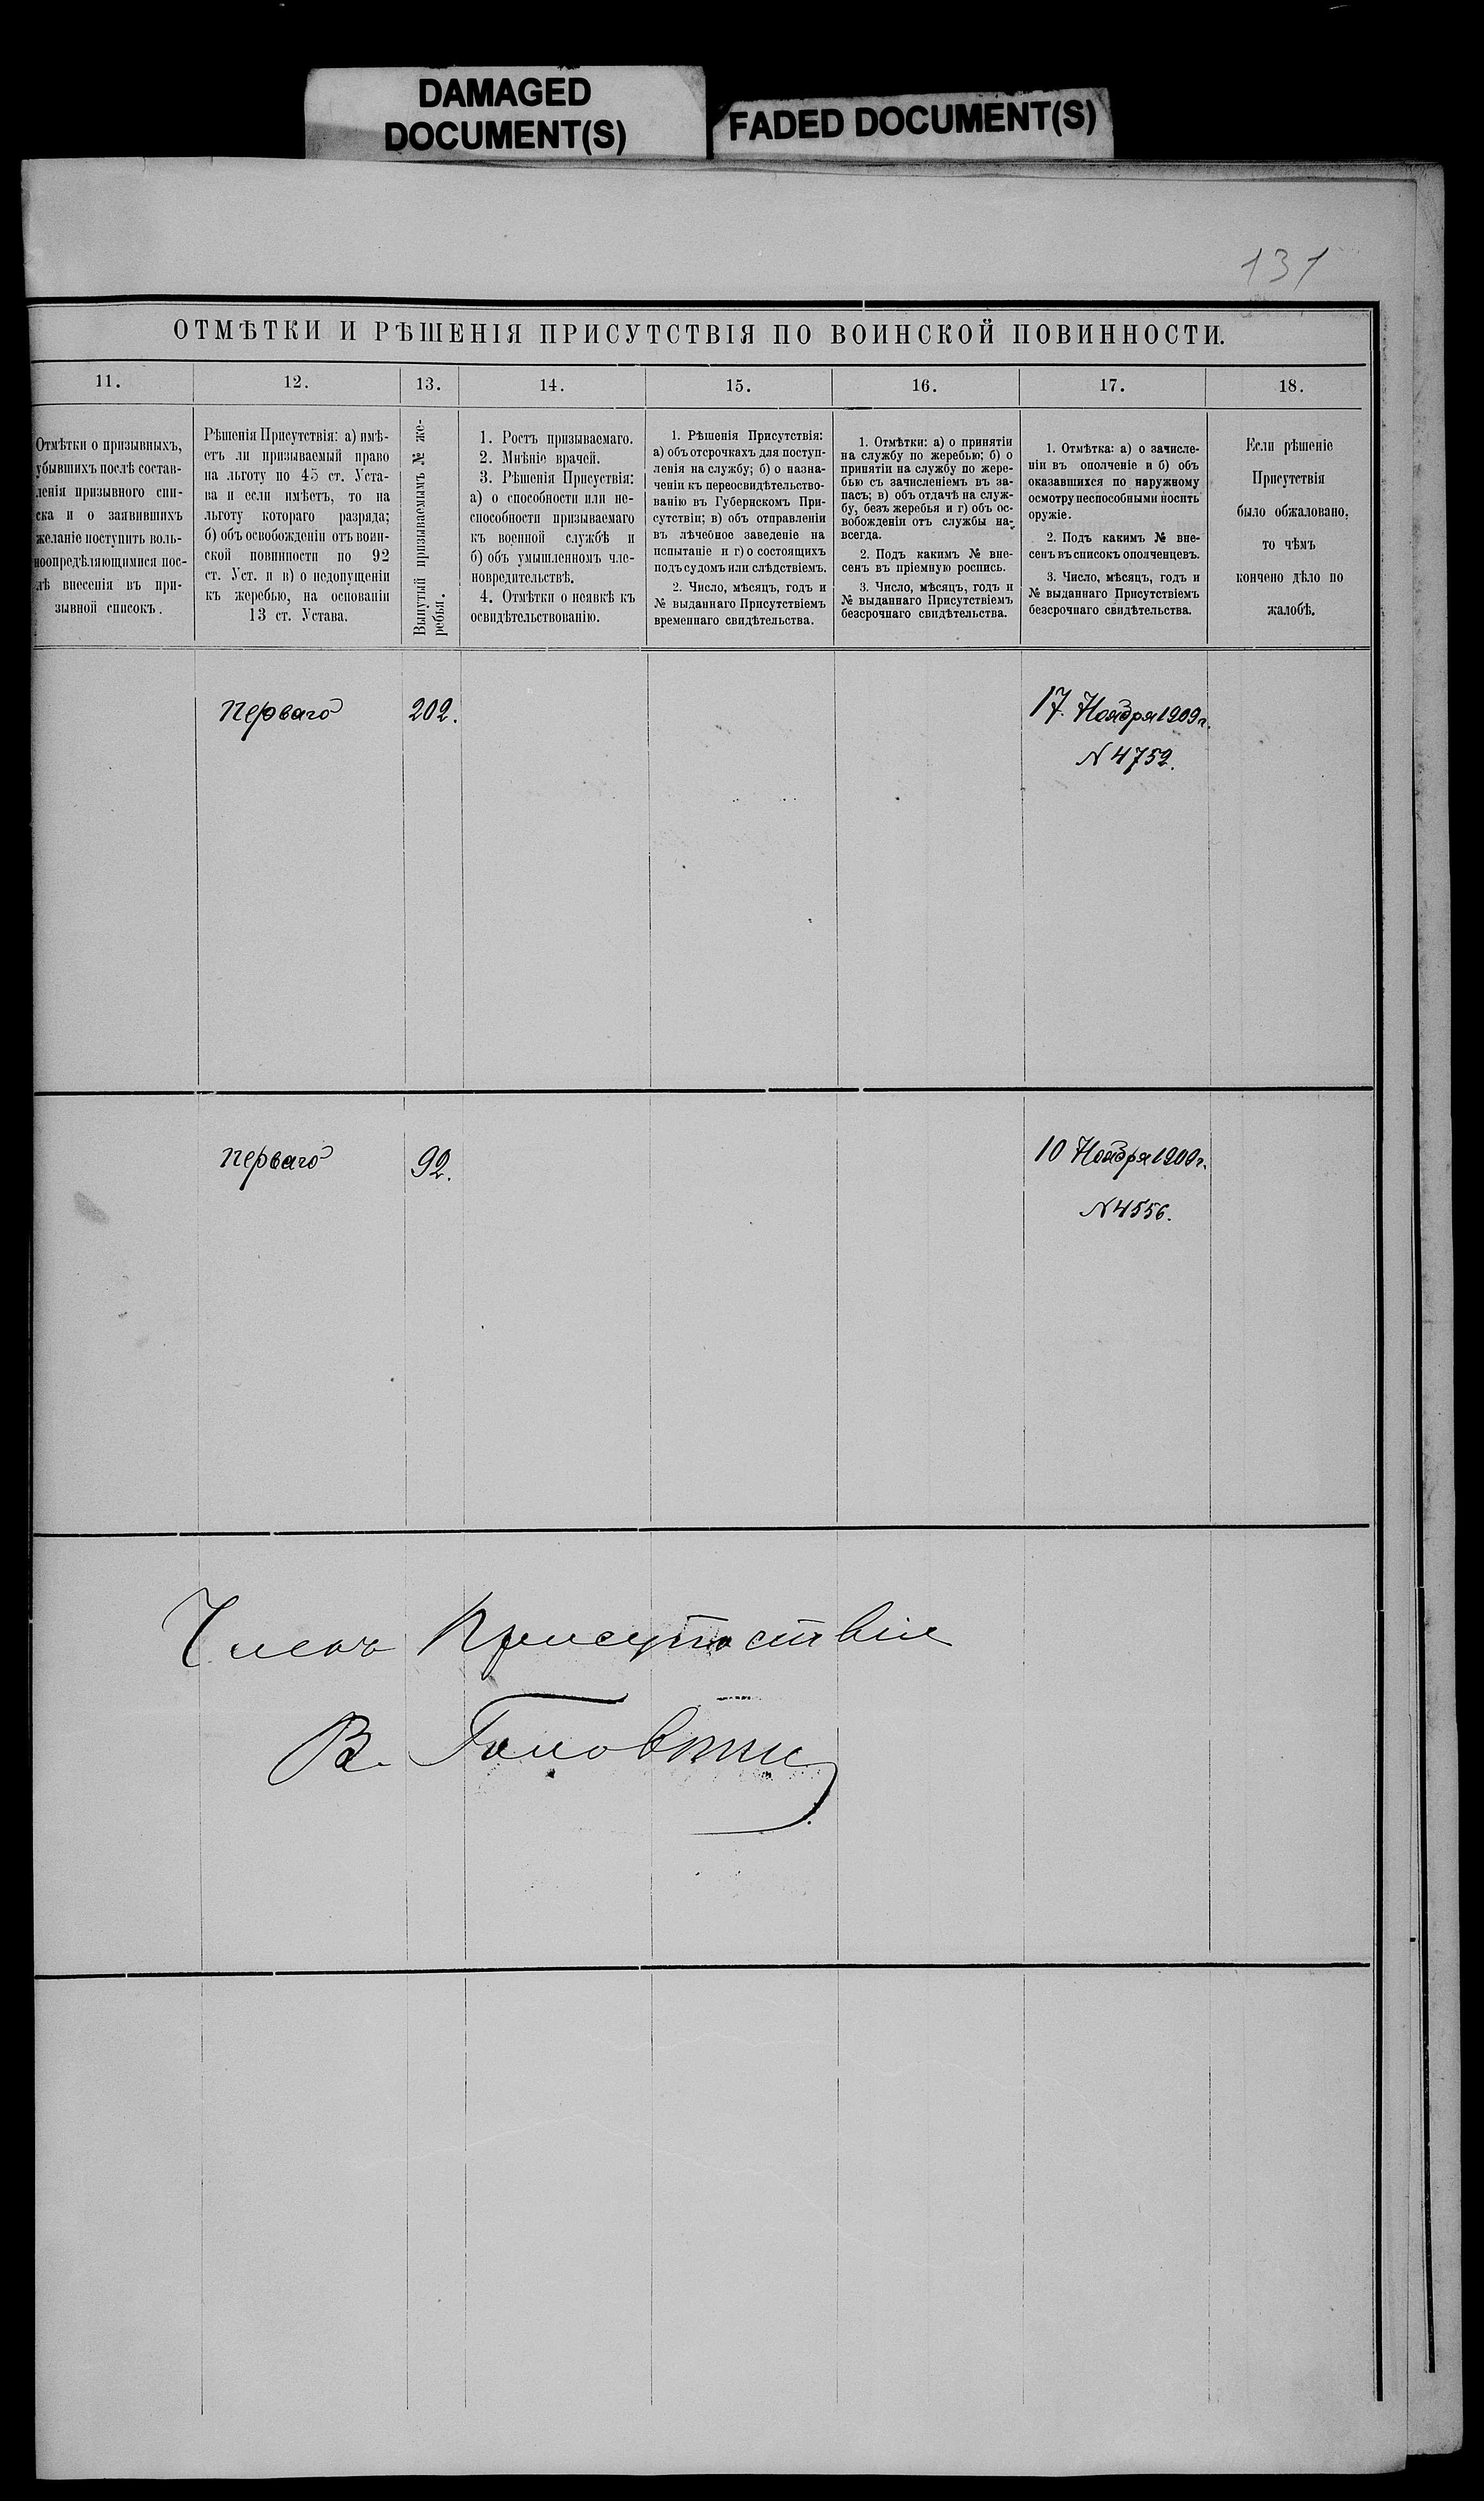 DAMAGED
DOCUMENT(S)
FADED DOCUMENT(S)
131
ОТМѢТКИ И РѢШЕНІЯ ПРИСУТСТВІЯ ПО ВОИНСКОЙ ПОВИННОСТИ.
11.
12.
13.
14.
15.
16.
17.
18.
Отмѣтки о призывныхъ,
убывшихъ послѣ состав-
ленія призывного спи-
ска и о заявившихъ
желаніе поступить воль-
ноопредѣляющимися пос-
лѣ внесенія въ при-
зывной списокъ.
Рѣшенія Присутствія: а) имѣ-
етъ ли призываемый право
на льготу по 45 ст. Уста-
ва и если имѣетъ, то на
льготу котораго разряда;
б) объ освобожденіи отъ воин-
ской повинности по 92
ст. Уст. и в) о недопущеніи
къ жеребью, на основаніи
13 ст. Устава.
Вынутый призываемымъ № же-
ребья.
1. Ростъ призываемаго.
2. Мнѣніе врачей.
3. Рѣшенія Присуствія:
а) о способности или не-
способности призываемаго
къ военной службѣ и
б) объ умышленномъ чле-
новредительствѣ.
4. Отмѣтки о неявкѣ къ
освидѣтельствованію.
1. Рѣшенія Присутствія:
а) объ отсрочкахъ для поступ-
ленія на службу; б) о назна-
ченіи къ переосвидѣтельство-
ванію въ Губернскомъ При-
сутствіи; в) объ отправленіи
въ лѣчебное заведеніе на
испытаніе и г) о состоящихъ
подъ судомъ или слѣдствіемъ.
2. Число, мѣсяцъ, годъ и
№ выданнаго Присутствіемъ
временнаго свидѣтельства.
1. Отмѣтки: а) о принятіи
на службу по жеребью; б) о
принятіи на службу по жере-
бью съ зачисленіемъ въ за-
пасъ; в) объ отдачѣ на служ-
бу, безъ жеребья и г) объ ос-
вобожденіи отъ службы на-
всегда.
2. Подъ какимъ № вне-
сенъ въ пріемную роспись.
3. Число, мѣсяцъ, годъ и
№ выданнаго Присутствіемъ
безсрочнаго свидѣтельства.
1. Отмѣтка: а) о зачисле-
ніи въ ополченіе и б) объ
оказавшихся по наружному
осмотру неспособными носить
оружіе.
2. Подъ какимъ № вне-
сенъ въ списокъ ополченцевъ.
3. Число, мѣсяцъ, годъ и
№ выданнаго Присутствіемъ
безсрочнаго свидѣтельства.
Если рѣшеніе
Присутствія
было обжаловано,
то чѣмъ
кончено дѣло по
жалобѣ.
перваго
202.
17. Ноября 1909 г.
N 4752.
перваго
92.
10 Ноября 1909 г.
N 4556.
Членъ Присутствія
В.